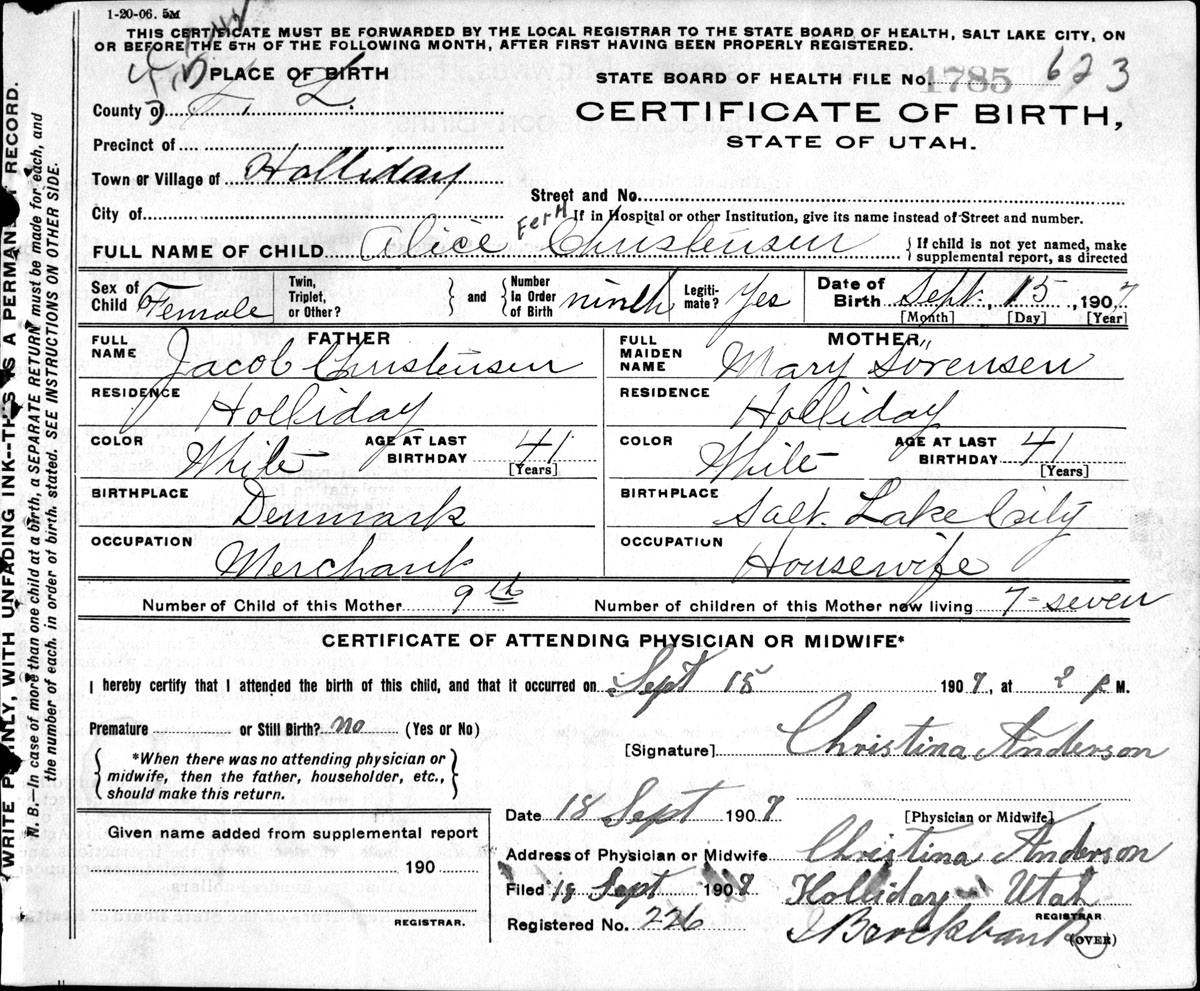 1-20-06. 5M
THIS CERTIFICATE MUST BE FORWARDED BY THE LOCAL REGISTRAR TO THE STATE BOARD OF HEALTH, SALT LAKE CITY, ON
OR BEFORE THE 5TH OF THE FOLLOWING MONTH, AFTER FIRST HAVING BEEN PROPERLY REGISTERED.
PLACE OF BIRTH
County of S. L.
Precinct of
Town or Village of Holliday
City of
STATE BOARD OF HEALTH FILE No. 1785 623
CERTIFICATE OF BIRTH,
STATE OF UTAH.
Street and No.
If in Hospital or other Institution, give its name instead of Street and number.
FULL NAME OF CHILD Alice Fern Christensen
If child is not yet named, make
supplemental report, as directed
Sex of Child Female
Twin, Triplet, or Other?
and
Number in Order of Birth ninth
Legiti- mate? Yes
Date of Birth Sept. 15, 1907
[Month] [Day] [Year]
FATHER
FULL NAME Jacob Christensen
RESIDENCE Holliday
COLOR White AGE AT LAST BIRTHDAY 41
[Years]
BIRTHPLACE Denmark
OCCUPATION Merchant
MOTHER
FULL MAIDEN NAME Mary Sörensen
RESIDENCE Holliday
COLOR White AGE AT LAST BIRTHDAY 41
[Years]
BIRTHPLACE Salt Lake City
OCCUPATION Housewife
Number of Child of this Mother 9th Number of children of this Mother now living 7-seven
CERTIFICATE OF ATTENDING PHYSICIAN OR MIDWIFE*
I hereby certify that I attended the birth of this child, and that it occurred on Sept 15 1907, at 2 P M.
Premature or Still Birth? no (Yes or No)
[Signature] Christina Anderson
*When there was no attending physician or
midwife, then the father, householder, etc.,
should make this return.
Date 18 Sept 1907
[Physician or Midwife]
Given name added from supplemental report
190
REGISTRAR.
Address of Physician or Midwife Christina Anderson
Filed 18 Sept 1907 Holliday Utah
Registered No. 226
REGISTRAR
(OVER)
WRITE PLAINLY, WITH UNFADING INK--THIS IS A PERMANENT RECORD.
N. B.—In case of more than one child at a birth, a SEPARATE RETURN must be made for each, and
the number of each, in order of birth, stated. SEE INSTRUCTIONS ON OTHER SIDE.